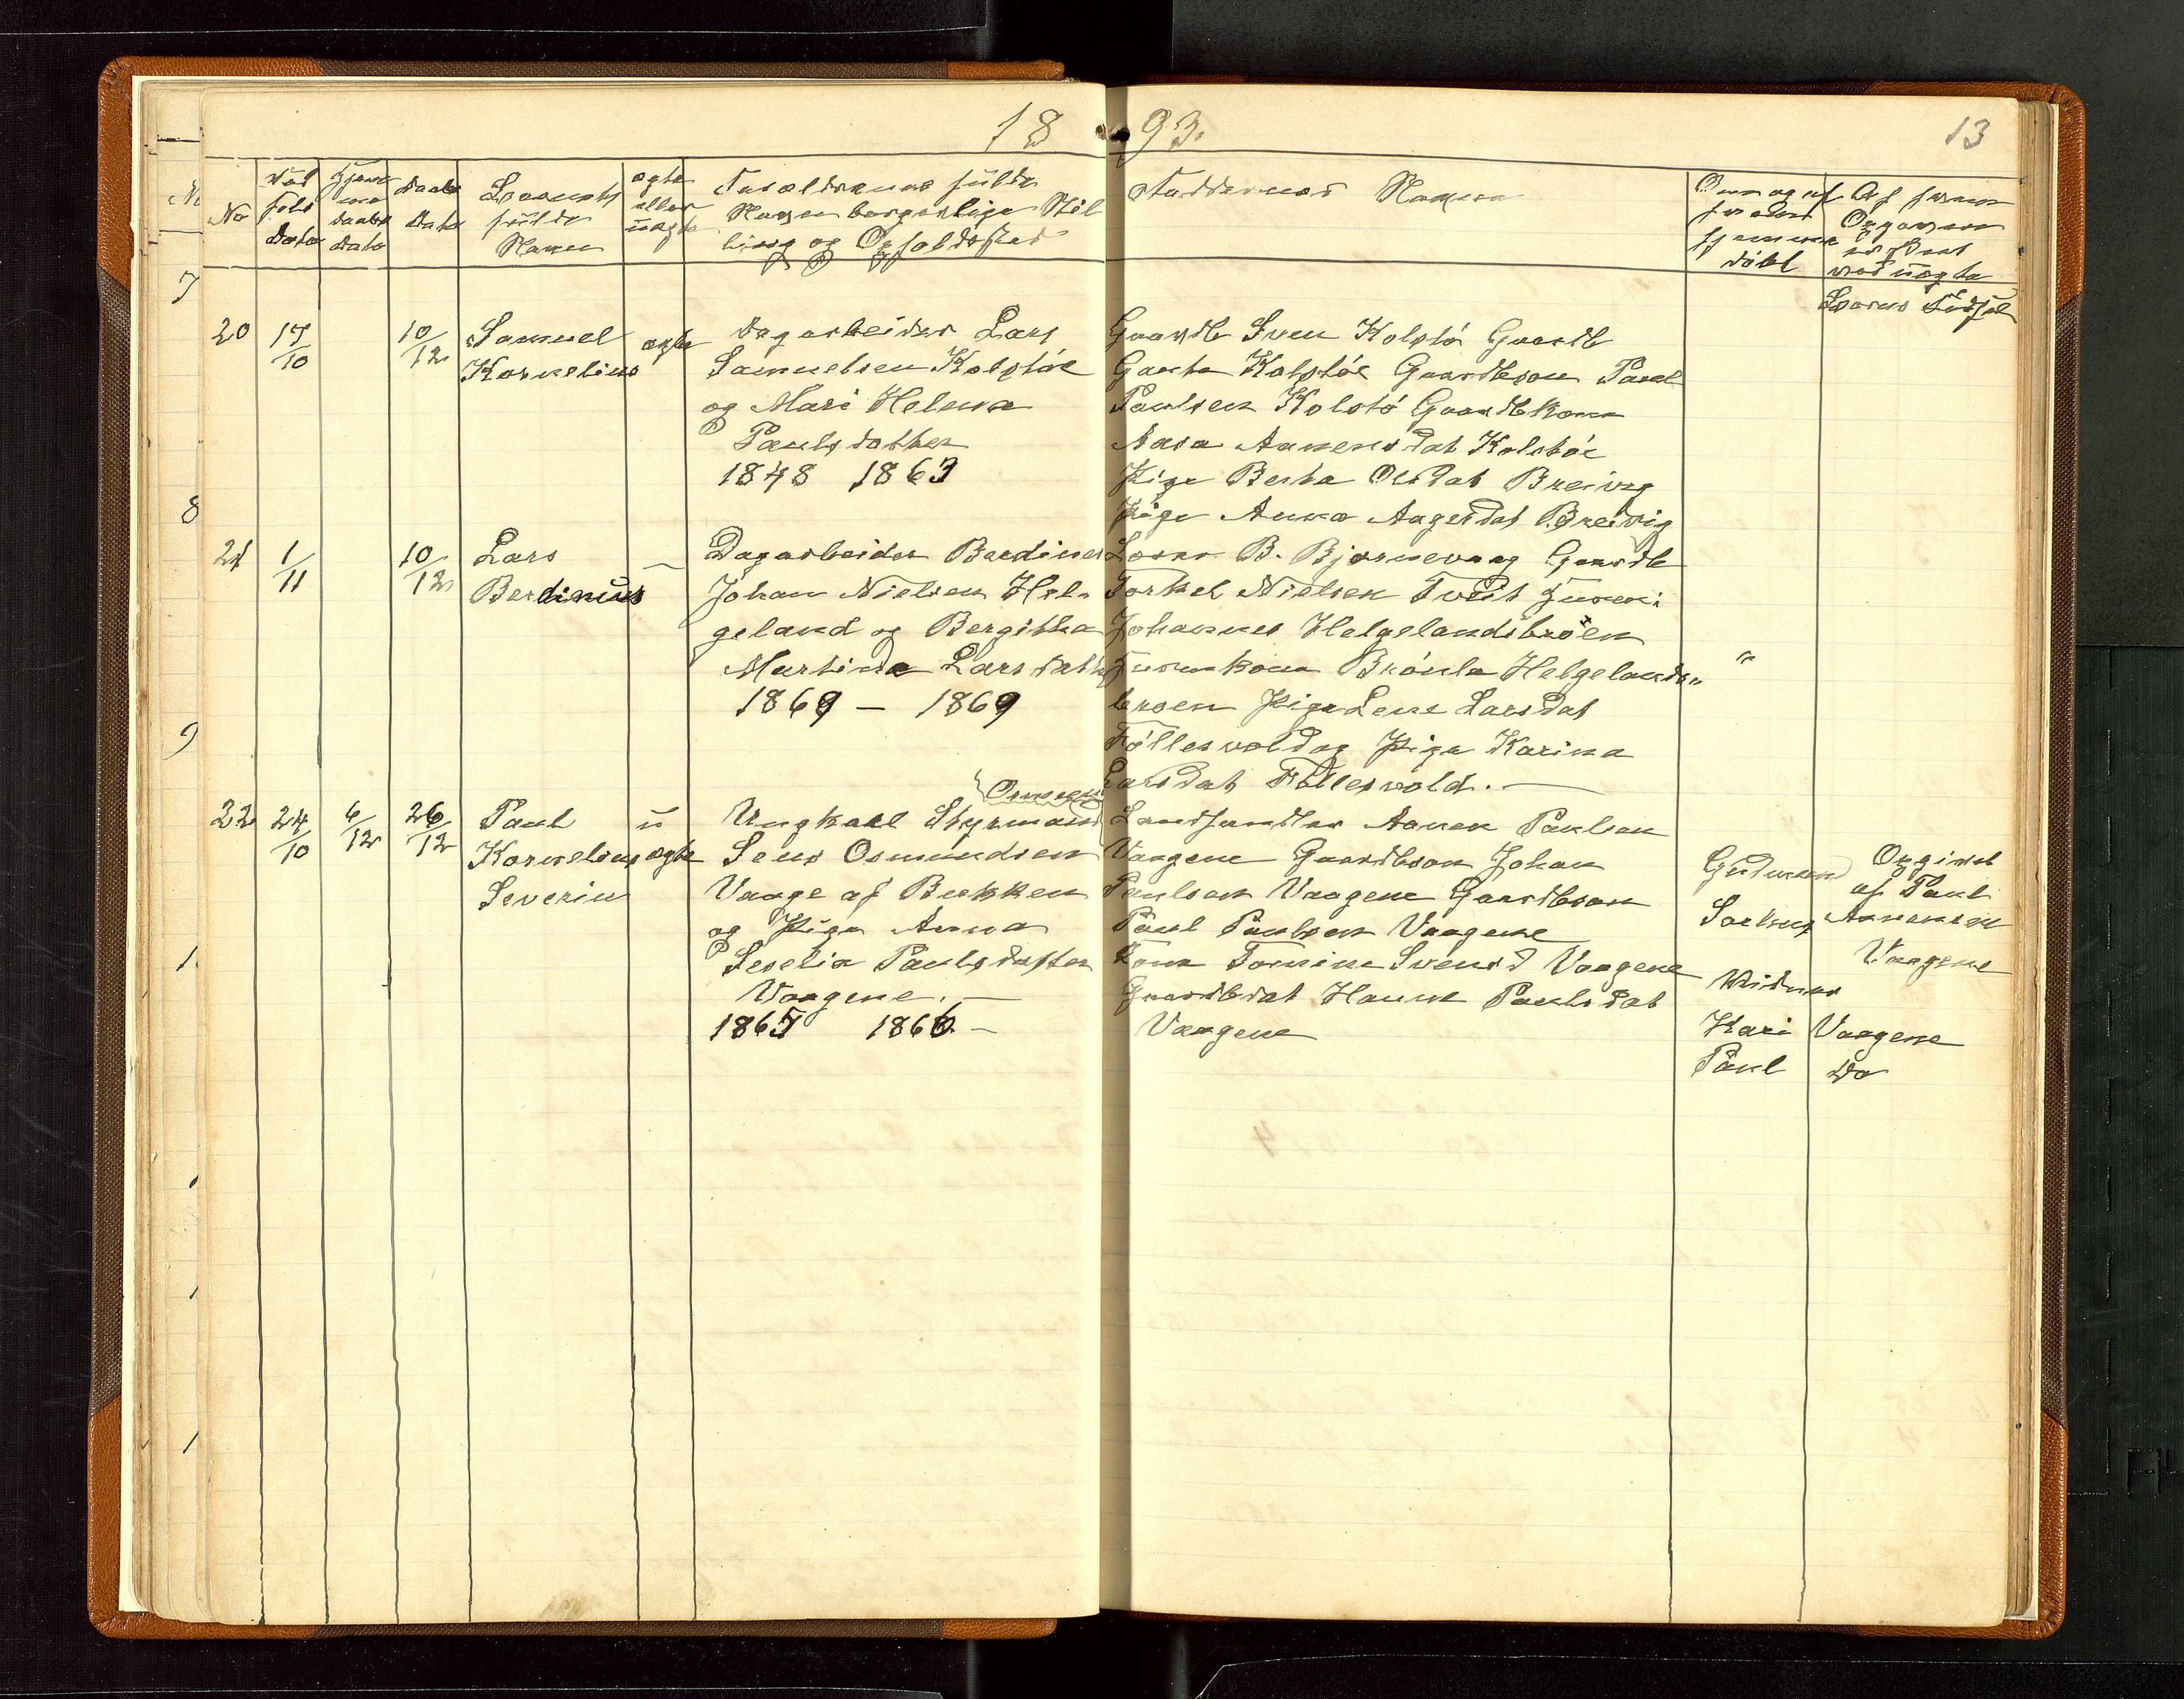 18 93. 13
No
Fød
sels
Dato
Hjem
me
daabs
Dato
Daabs
Dato
Barnets
fulde
Navn
ægte
eller
uægte
Forældrenes fulde
Navn borgerlige Stil
ling og Opholdssted
Faddernes Navne
Om og af
hvem
hjemme
døbt
Af hvem
Opgaven
er skeet
ved uægte
Børns Fødsel
20 17/10 10/12 Samuel ægte
Kornelius
Dagarbeider Lars
Samuelsen Kolstöe
og Mari Helena
Paulsdatter
1848 1863
Gaardb Sven Kolstö Gaardb
Gaute Kolstöe Gaardbson Paul
Paulsen Kolstö Gaardbkone
Aasa Aanensdat Kolstöe
Pige Berta Olsdat Breivig
Pige Anna Aagesdat Breivig
21 1/11 10/12 Lars —
Berdinius
Dagarbeider Berdines
Johan Nielsen Hel-
geland og Bergitha
Martine Larsdatter
1869 — 1869
Lars B. Bjørnevaag Gaardb
Torkel Nielsen Tveit
Johannes Helgelandsbröen
Brönla Helgelands-
broen Pige Lene Larsdat
Föllesvold og Pige Karina
Larsdat Föllesvold. —
"
22 24/10 6/12 26/12 Paul u
Kornelius ægte
Severin
Ungkarl Styrmand
Jens Osmundsen
Vaage af Bukken
og Pige Anna
Seselia Paulsdatter
Vaagene. —
1865 1866 —
Landhandler Aanen Paulsen
Vaagene Gaardbson Johan
Paulsen Vaagene Gaardbson
Paul Paulsen Vaagene
Kone Tomine Svensd Vaagene
Gaardbdat Hanne Paulsdat
Vaagene
Gudmund
Vidner
Kari Vaagene
Paul Do
Opgivet
af Paul
Aanensen
Vaagene
7
8
9